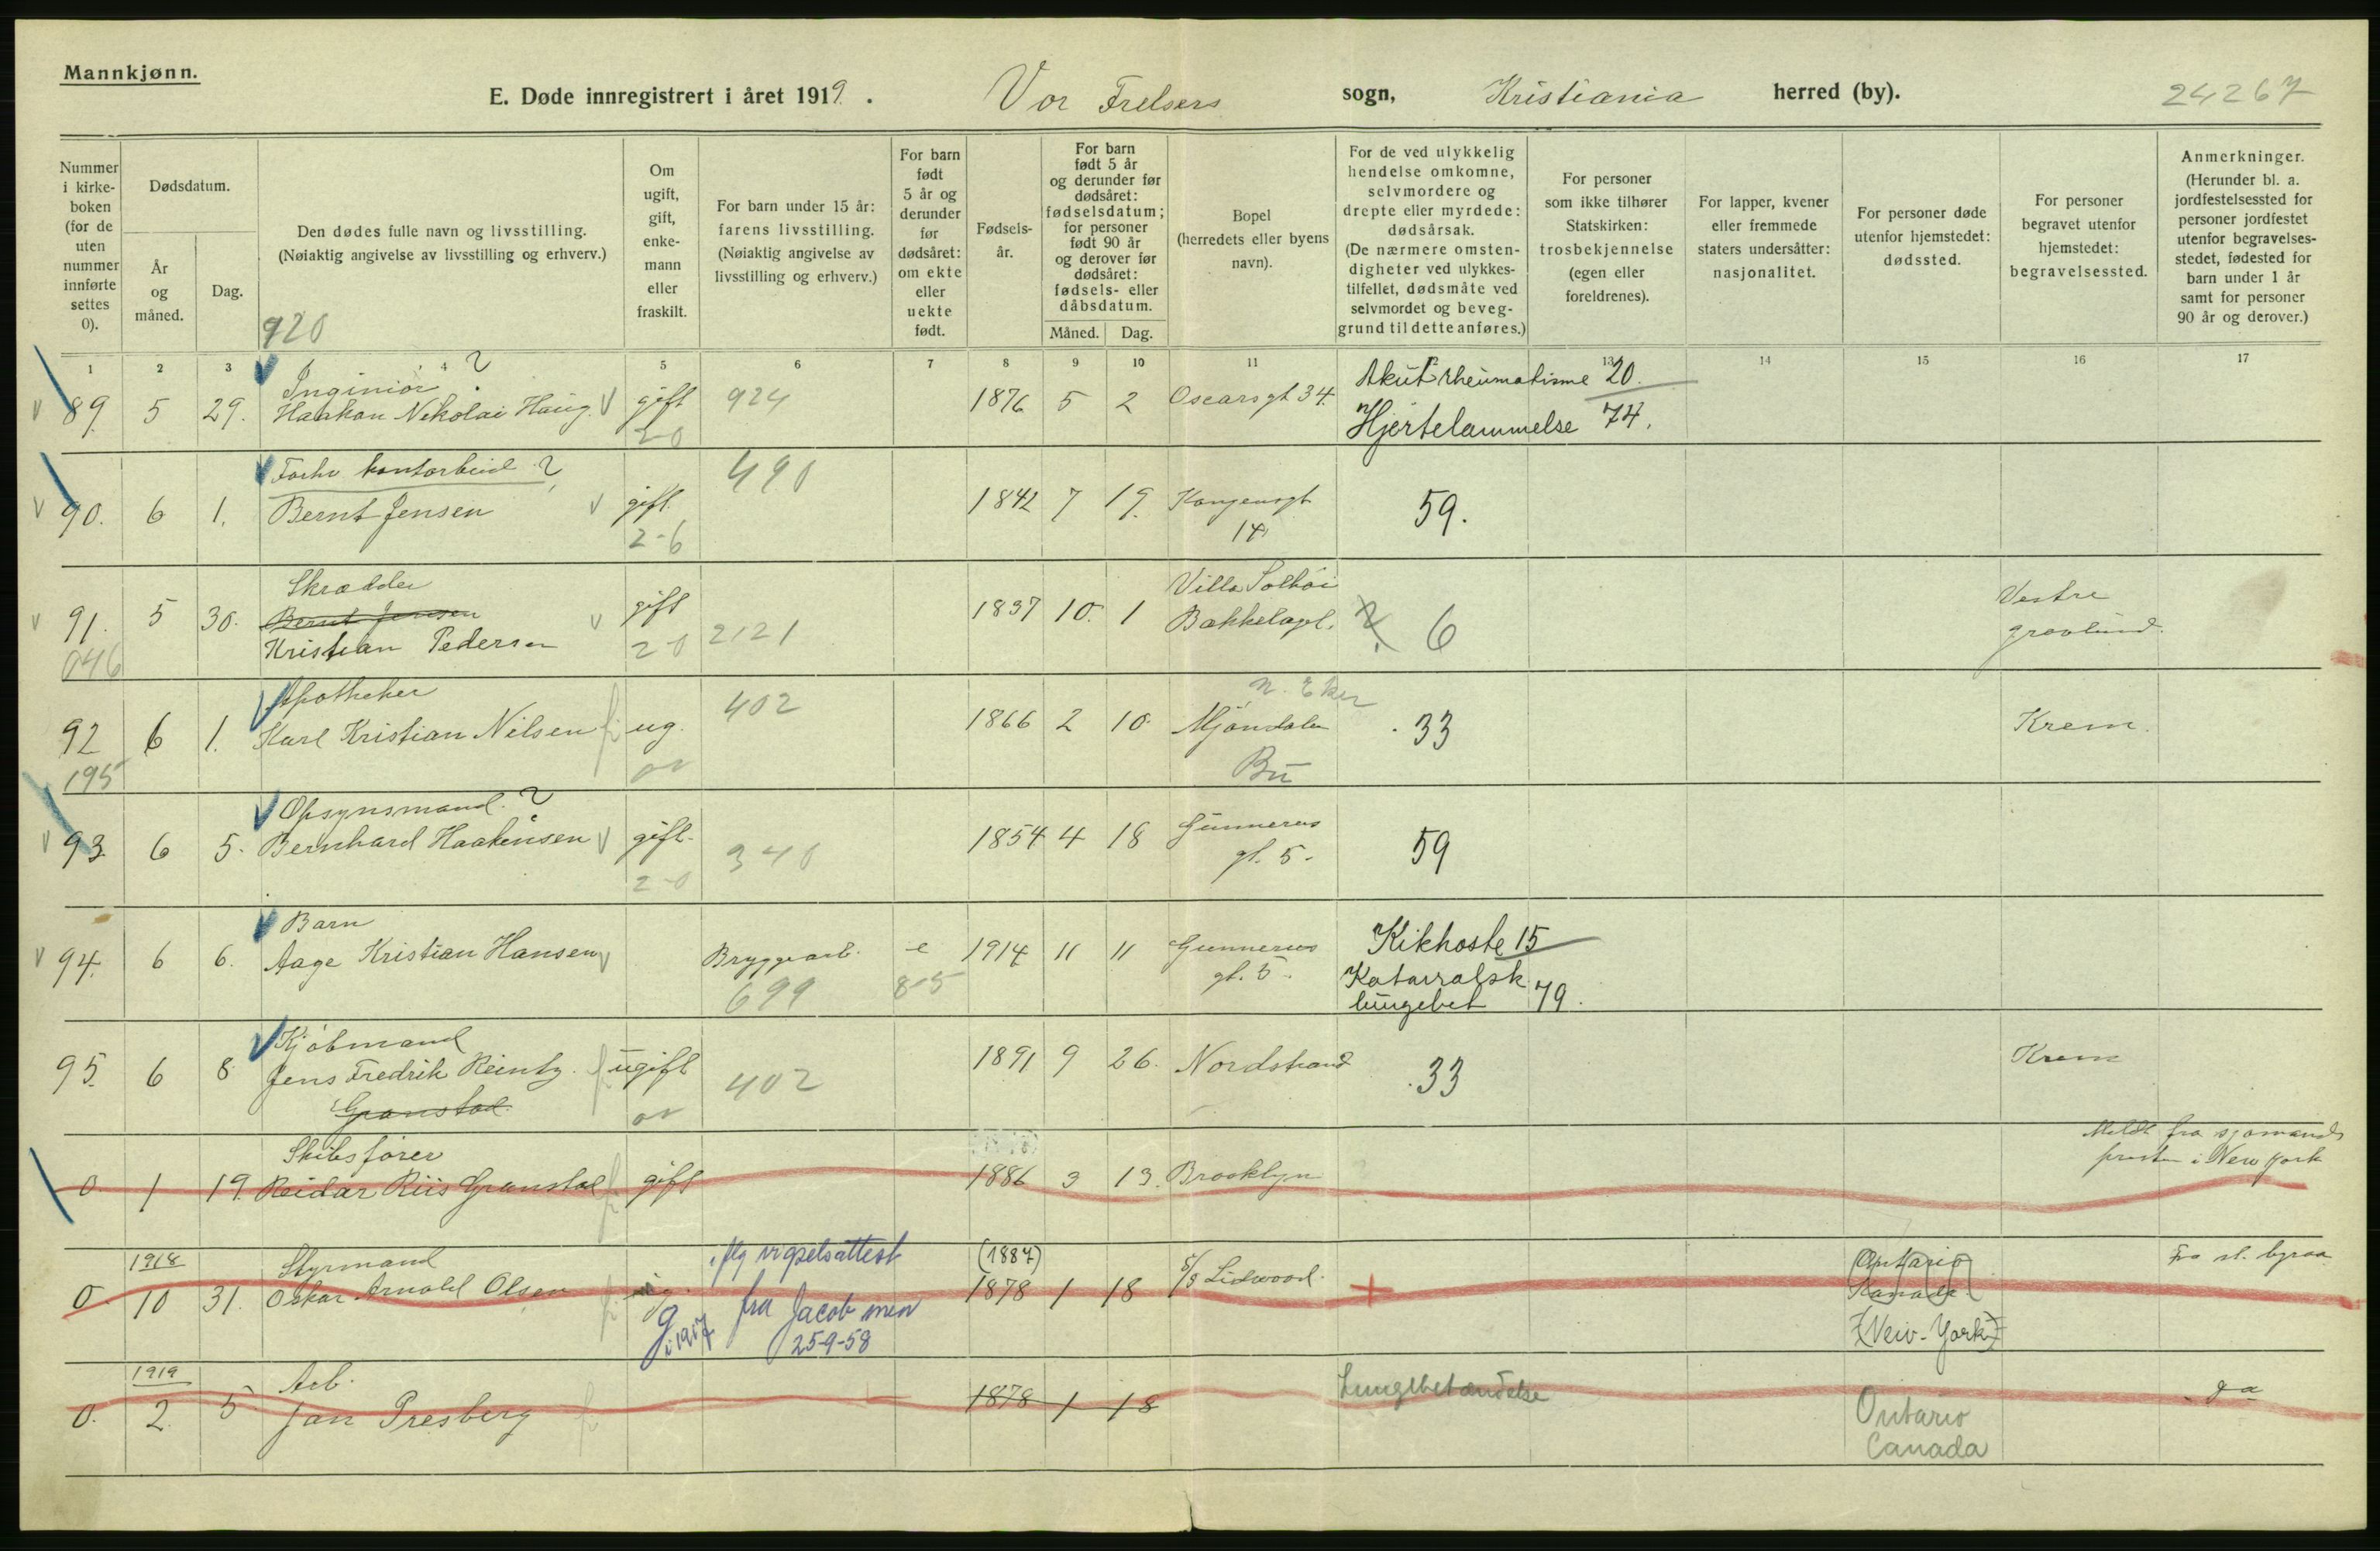 Mannkjønn.
E. Døde innregistrert i året 1919. Vor Frelsers sogn, Kristiania herred (by). 24267
Nummer i kirke-boken (for de uten nummer innførte settes 0).
Dødsdatum.
År og måned.
Dag.
Den dødes fulle navn og livsstilling.
(Nøiaktig angivelse av livsstilling og erhverv.)
920
Om ugift, gift, enke-mann eller fraskilt.
For barn under 15 år: farens livsstilling.
(Nøiaktig angivelse av livsstilling og erhverv.)
For barn født 5 år og derunder før dødsåret: om ekte eller uekte født.
Fødsels-år.
For barn født 5 år og derunder før dødsåret: fødselsdatum; for personer født 90 år og derover før dødsåret: fødsels- eller dåbsdatum.
Måned. Dag.
Bopel (herredets eller byens navn).
For de ved ulykkelig hendelse omkomne, selvmordere og drepte eller myrdede: dødsårsak. (De nærmere omsten-digheter ved ulykkes-tilfellet, dødsmåte ved selvmordet og beveg-grund til dette anføres.)
For personer som ikke tilhører Statskirken: trosbekjennelse (egen eller foreldrenes).
For lapper, kvener eller fremmede staters undersåtter: nasjonalitet.
For personer døde utenfor hjemstedet: dødssted.
For personer begravet utenfor hjemstedet: begravelsessted.
Anmerkninger. (Herunder bl. a. jordfestelsessted for personer jordfestet utenfor begravelses-stedet, fødested for barn under 1 år samt for personer 90 år og derover.)
1 2 3 4 5 6 7 8 9 10 11 12 13 14 15 16 17
Inginiør ?
89. 5 29. Haakon Nikolai Haug. V gift 924 1876 5 2 Oscarsgt 34. Akut rheumatisme 20.
2-0 Hjertelammelse 74.
Forhv kontorbeid ? 490
90. 6 1. Bernt Jensen V gift 1842 7 19. Kongensgt 59.
2-6 14
Skrædder Villa Solhøi Vestre
91. 5 30. Bernt Jensen V gift 1837 10. 1 Bakkelagt. ? 6 gravlund.
046 Kristian Pedersen 2-0 2121
Apotheker 402 N. Eker
92 6 1. Karl Kristian Nilsen ug. 1866 2 10. Mjøndalen 33 Krem.
195 Bu
Opsynsmand ?
93 6 5. Bernhard Haakensen V gift. 340 1854 4 18 Gunnerus 59
2-0 gt. 5.
Barn Kikhoste 15
94. 6 6. Aage Kristian Hansen V Bryggearb. e 1914 11 11 Gunnerus Katarralsk
699 8-5 gt. 5. lungebet 79.
Kjøbmand
95. 6 8. Jens Fredrik Reintz. ugift 402 1891 9 26. Nordstrand 33 Krem
Granstad
Skibsfører Meldt fra sjømands
0 1 19. Reidar Riis Granstad gift 1886 3 13. Brooklyn presten i New York
1918 Styrmand iflg vigselsattest (1887) Ontario Fra st. byraa
0. 10 31. Oskar Arnold Olsen ug. fra Jacob men 1878 1 18 S/S Lidwood. + Kanada
g i 1917 25-9-58 (New-York)
1919 Arb. Lungebetændelse da
0. 2. 5 Jan Presberg 1878 1 18 Ontario
Canada